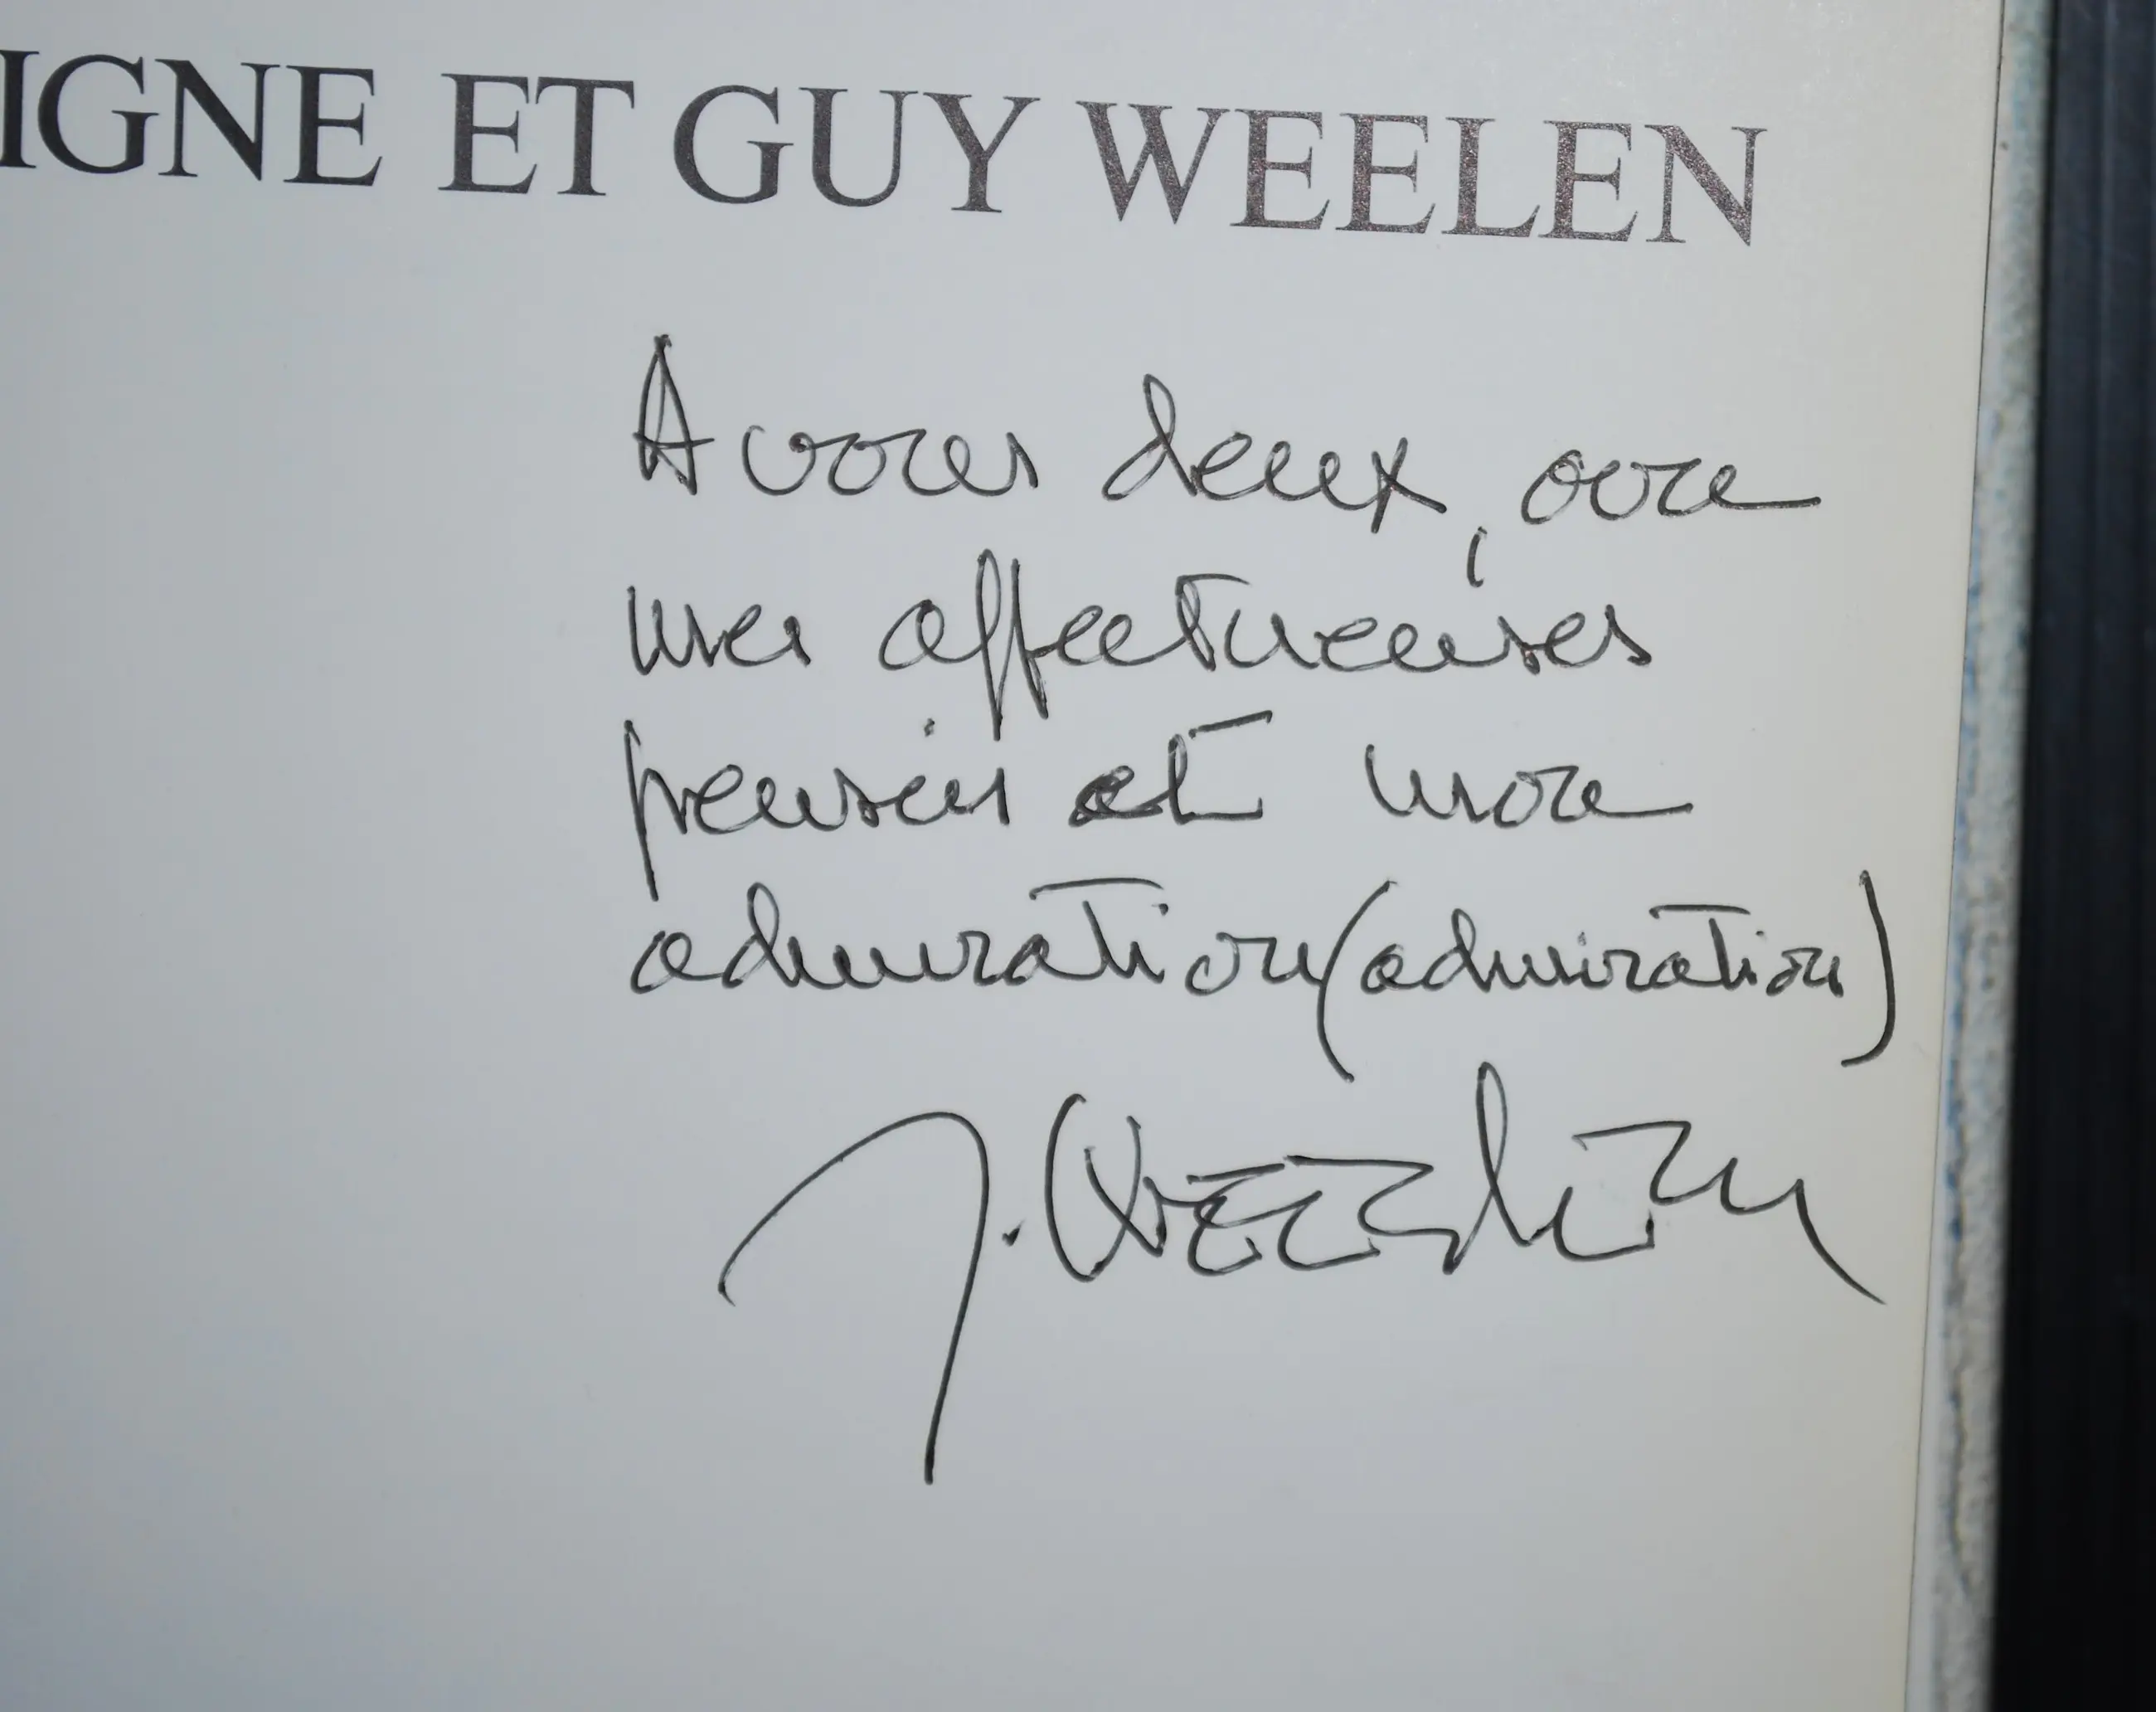 IGNE ET GUY WEELEN
A vous deux, avec
mes affectueuses
pensées et mon
admiration (admiration)